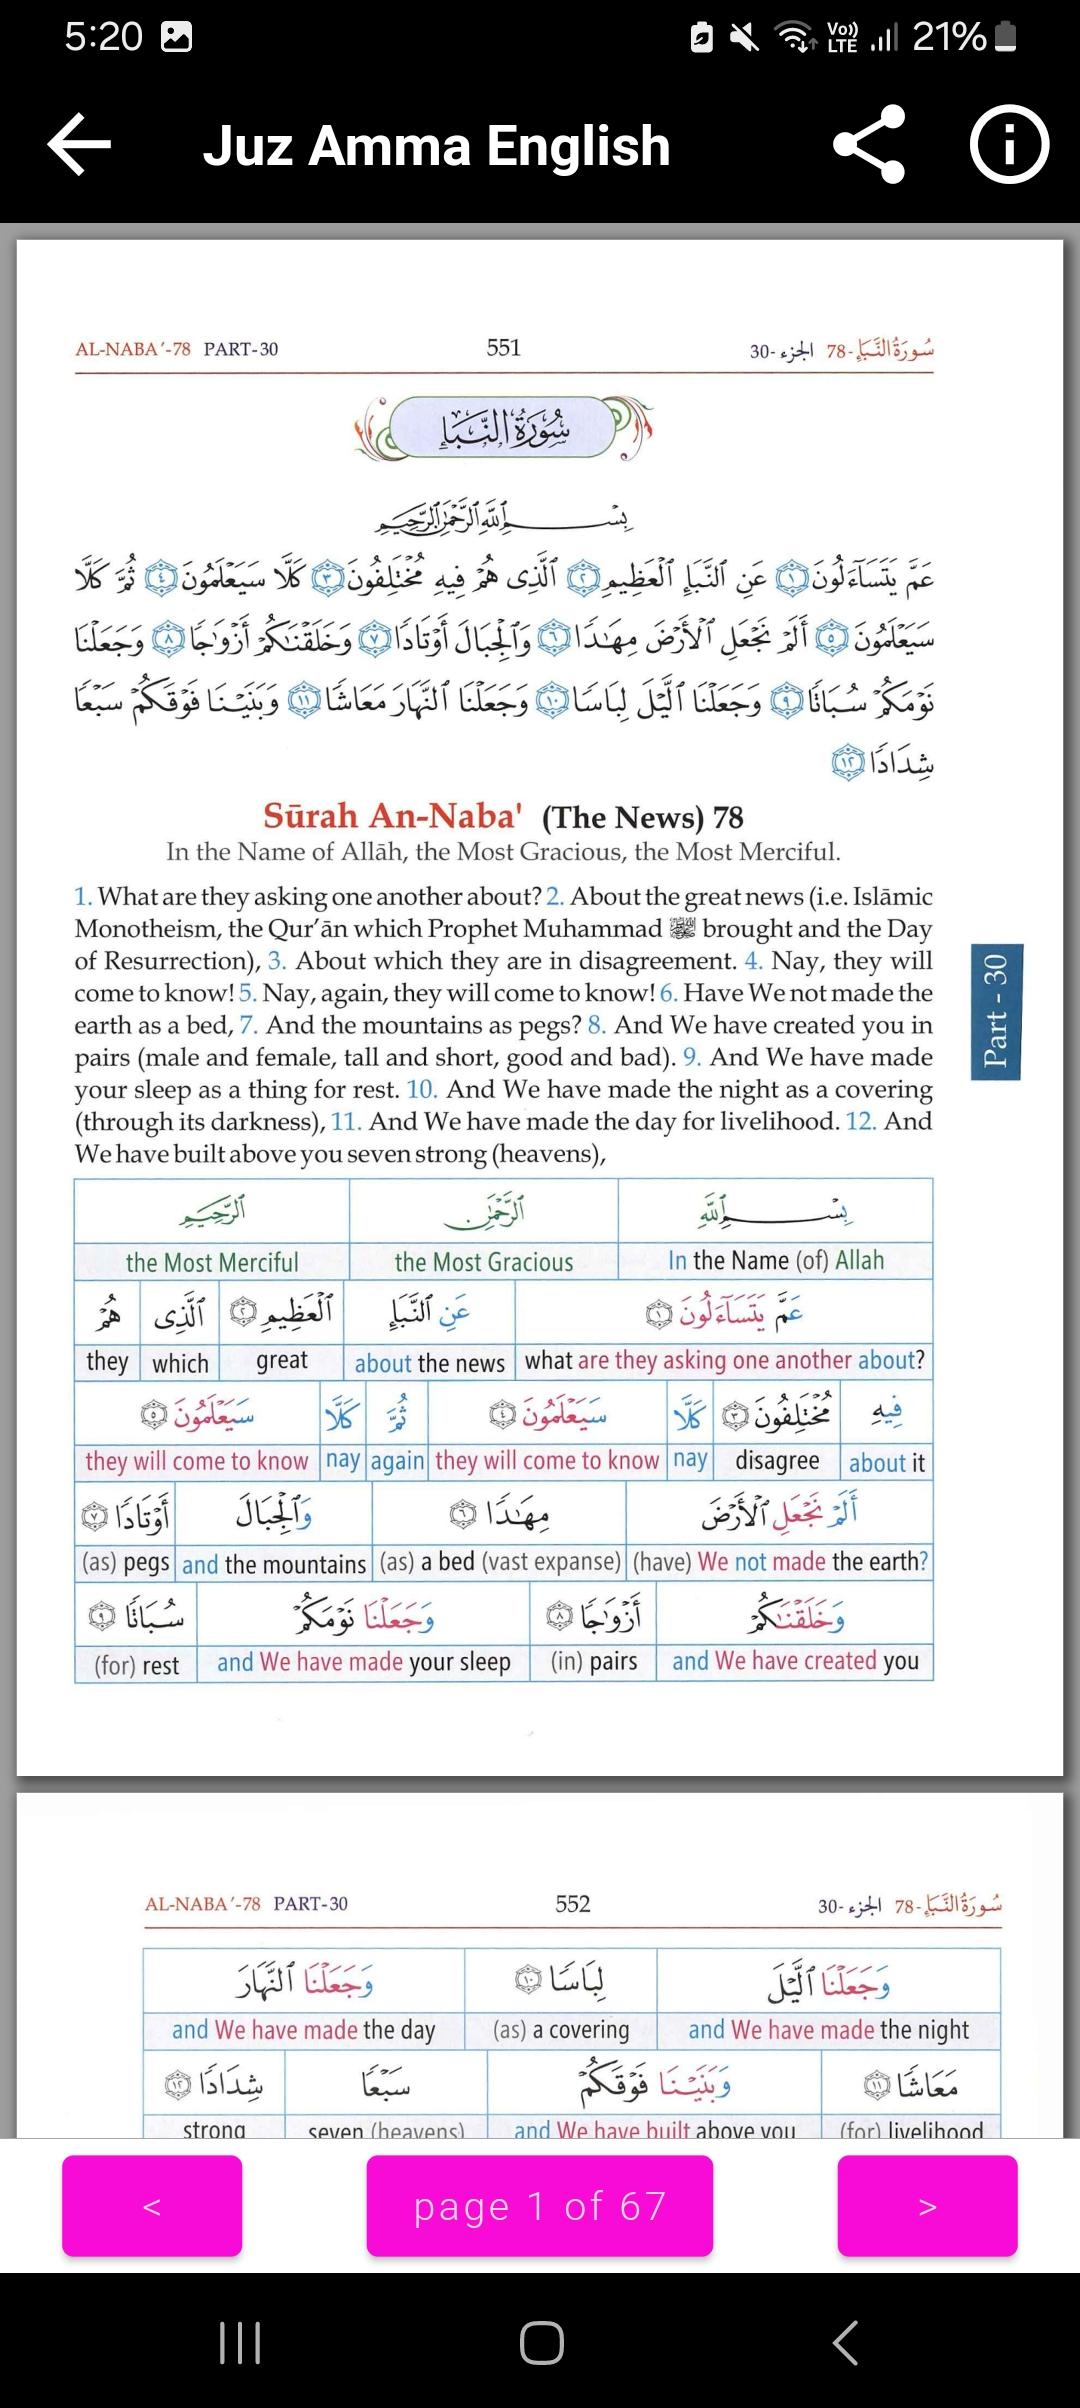 5:20 Vo)) LTE 21%
Juz Amma English
AL-NABA'-78 PART-30 551 سُورَةُ النَّبَإِ-78 الجزء-30
سُورَةُ النَّبَإِ
بِسْمِ ٱللَّهِ ٱلرَّحْمَٰنِ ٱلرَّحِيمِ
عَمَّ يَتَسَآءَلُونَ ١ عَنِ ٱلنَّبَإِ ٱلْعَظِيمِ ٢ ٱلَّذِى هُمْ فِيهِ مُخْتَلِفُونَ ٣ كَلَّا سَيَعْلَمُونَ ٤ ثُمَّ كَلَّا
سَيَعْلَمُونَ ٥ أَلَمْ نَجْعَلِ ٱلْأَرْضَ مِهَٰدًا ٦ وَٱلْجِبَالَ أَوْتَادًا ٧ وَخَلَقْنَٰكُمْ أَزْوَٰجًا ٨ وَجَعَلْنَا
نَوْمَكُمْ سُبَاتًا ٩ وَجَعَلْنَا ٱلَّيْلَ لِبَاسًا ١٠ وَجَعَلْنَا ٱلنَّهَارَ مَعَاشًا ١١ وَبَنَيْنَا فَوْقَكُمْ سَبْعًا
شِدَادًا ١٢
Sūrah An-Naba' (The News) 78
In the Name of Allāh, the Most Gracious, the Most Merciful.
1. What are they asking one another about? 2. About the great news (i.e. Islāmic
Monotheism, the Qur'ān which Prophet Muhammad ﷺ brought and the Day
of Resurrection), 3. About which they are in disagreement. 4. Nay, they will
come to know! 5. Nay, again, they will come to know! 6. Have We not made the
earth as a bed, 7. And the mountains as pegs? 8. And We have created you in
pairs (male and female, tall and short, good and bad). 9. And We have made
your sleep as a thing for rest. 10. And We have made the night as a covering
(through its darkness), 11. And We have made the day for livelihood. 12. And
We have built above you seven strong (heavens),
Part - 30
بِسْمِ ٱللَّهِ ٱلرَّحْمَٰنِ ٱلرَّحِيمِ
the Most Merciful the Most Gracious In the Name (of) Allah
عَمَّ يَتَسَآءَلُونَ ١ عَنِ ٱلنَّبَإِ ٱلْعَظِيمِ ٢ ٱلَّذِى هُمْ
they which great about the news what are they asking one another about?
فِيهِ مُخْتَلِفُونَ ٣ كَلَّا سَيَعْلَمُونَ ٤ ثُمَّ كَلَّا سَيَعْلَمُونَ ٥
they will come to know nay again they will come to know nay disagree about it
أَلَمْ نَجْعَلِ ٱلْأَرْضَ مِهَٰدًا ٦ وَٱلْجِبَالَ أَوْتَادًا ٧
(as) pegs and the mountains (as) a bed (vast expanse) (have) We not made the earth?
وَخَلَقْنَٰكُمْ أَزْوَٰجًا ٨ وَجَعَلْنَا نَوْمَكُمْ سُبَاتًا ٩
(for) rest and We have made your sleep (in) pairs and We have created you
AL-NABA'-78 PART-30 552 سُورَةُ النَّبَإِ-78 الجزء-30
وَجَعَلْنَا ٱلَّيْلَ لِبَاسًا ١٠ وَجَعَلْنَا ٱلنَّهَارَ
and We have made the day (as) a covering and We have made the night
مَعَاشًا ١١ وَبَنَيْنَا فَوْقَكُمْ سَبْعًا شِدَادًا ١٢
strong seven (heavens) and We have built above you (for) livelihood
< page 1 of 67 >